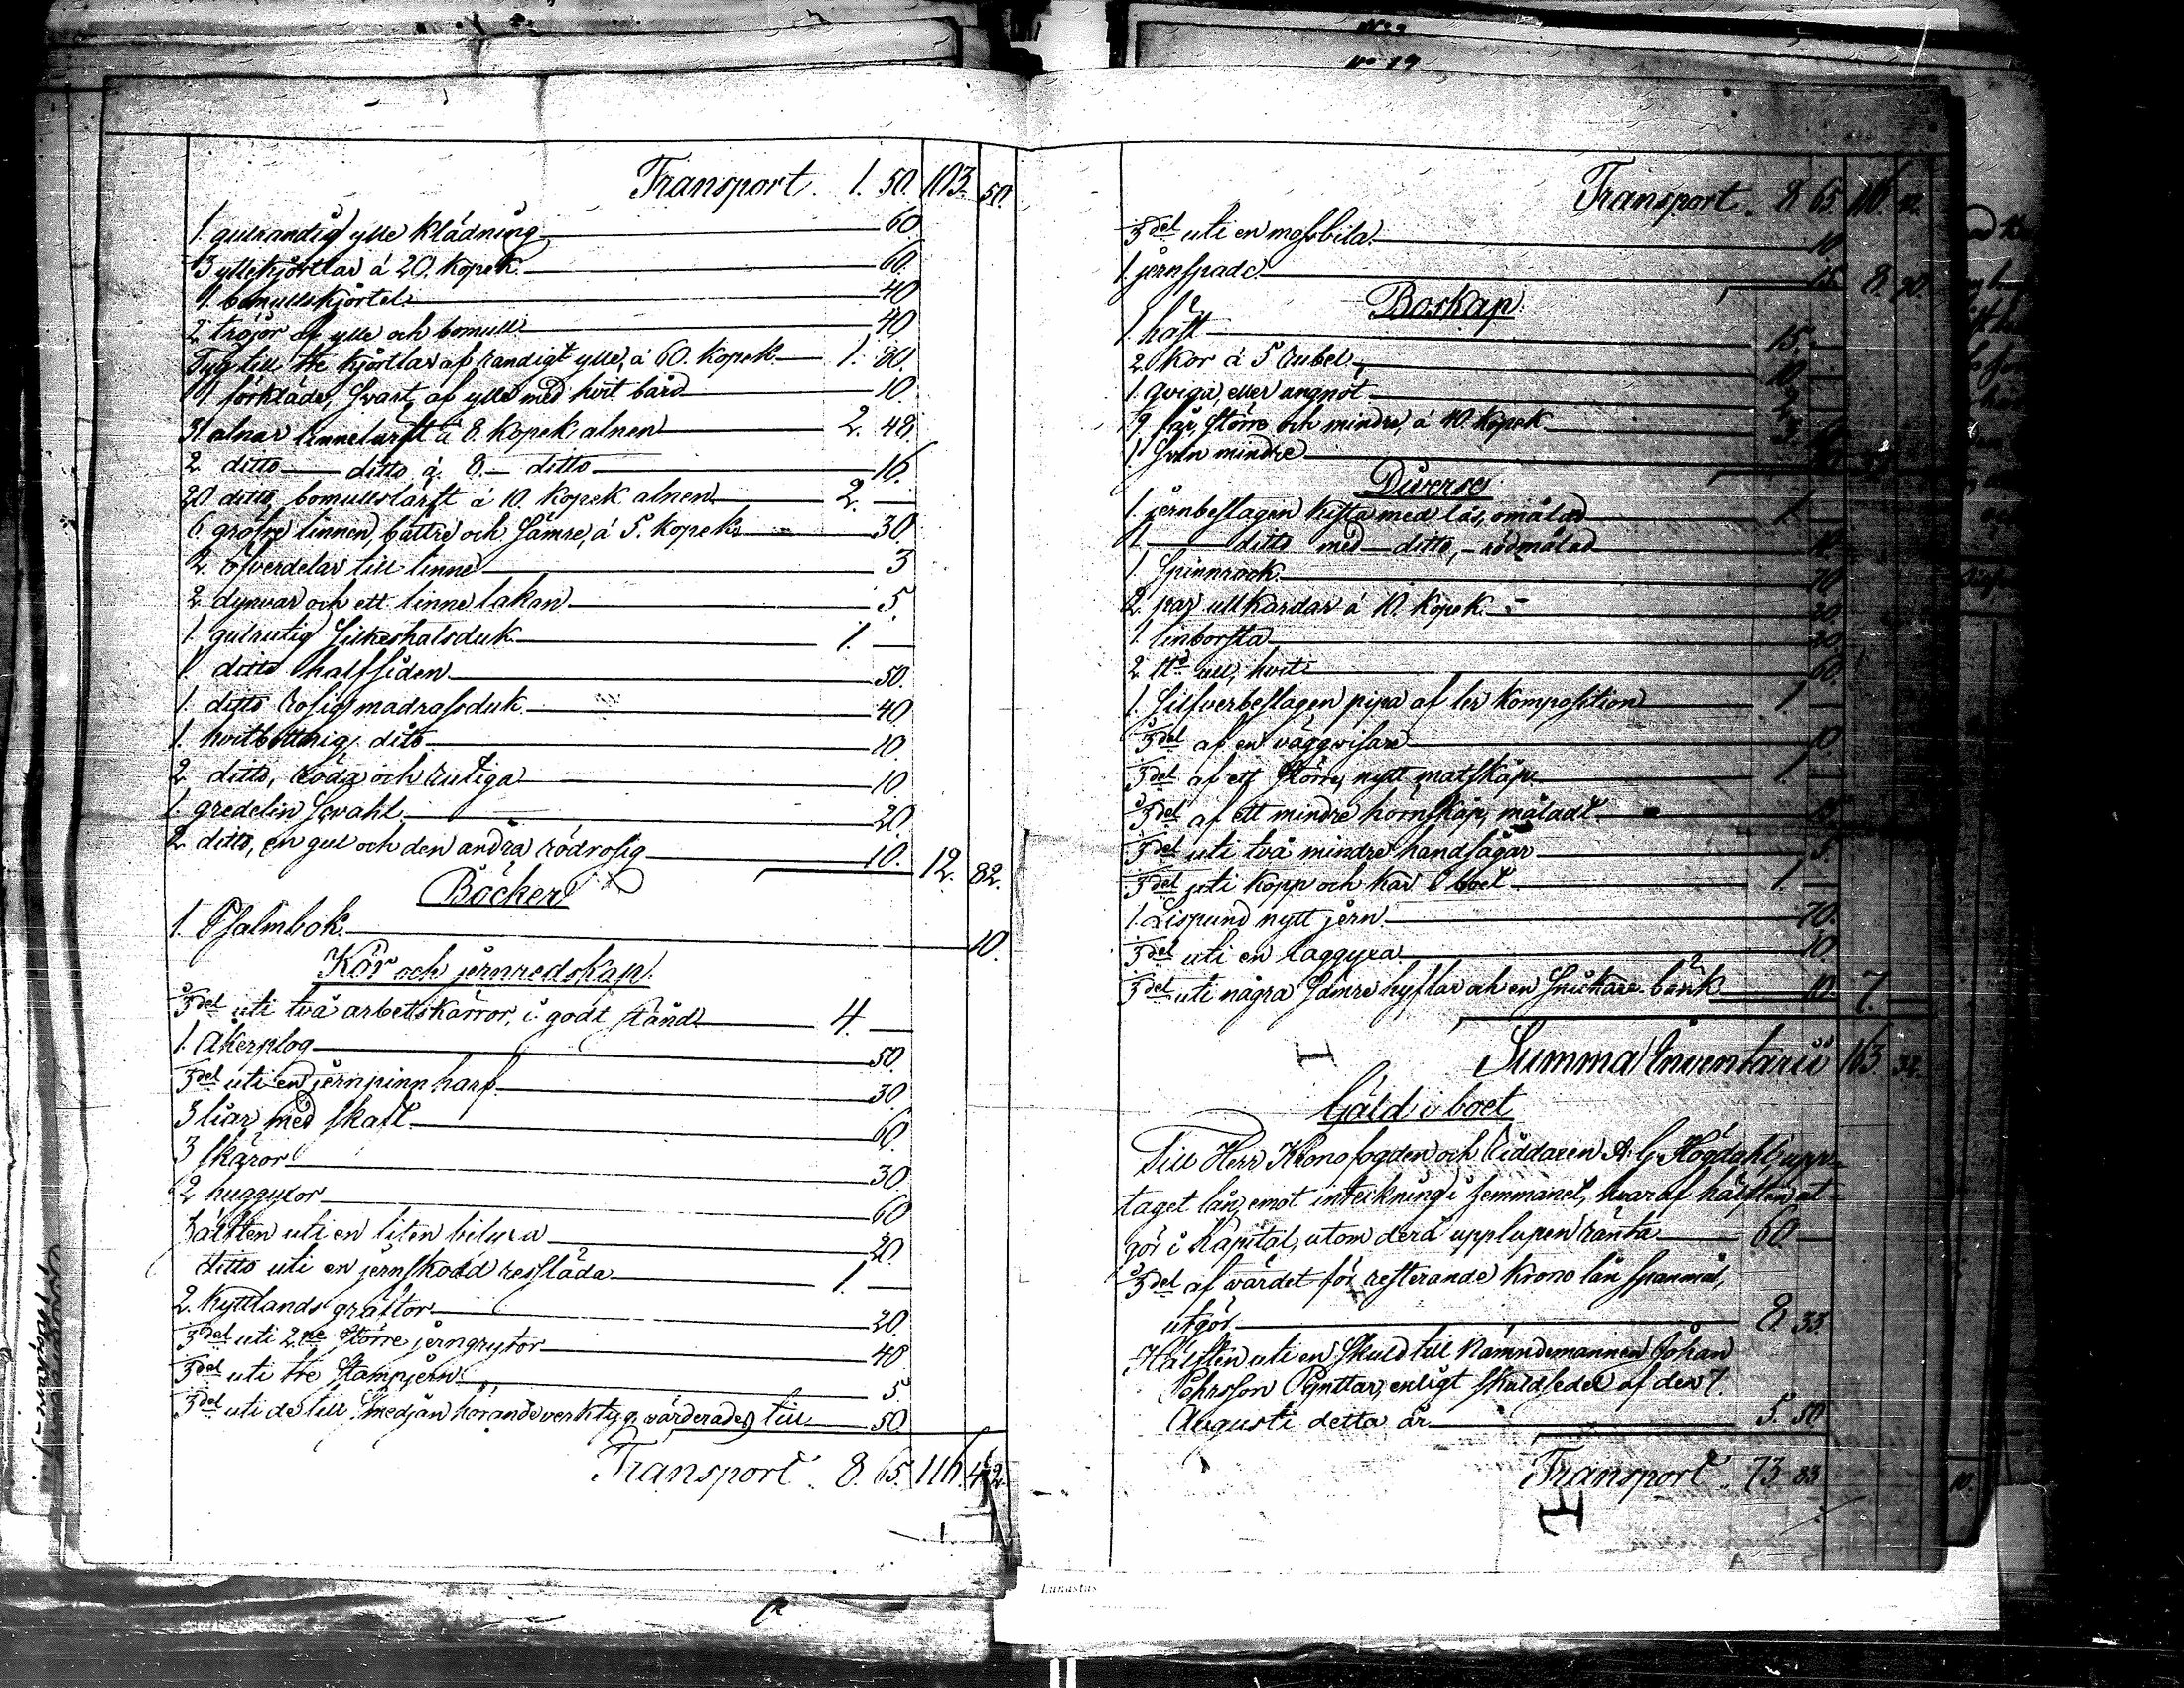 Transport. 1. 50. 103. 50.
1. gulrandig ylle klädning 60.
3 yllekjortlar á 20. kopek. 60.
1. bomullskjortel. 40
2 tröjor af ylle och bomull. 40
Tyg till tre kjortlar af randigt ylle, á 60. kopek 1. 80.
1. förkläde, svart, af ylle med hvit bård 10.
31 alnar linnelärft á 8. kopek alnen 2. 48.
2 ditto ditto á 8. ditto 16.
20 ditto bomullslärft á 10. kopek alnen 2.
6 gröfre linnen, bättre och sämre, á 5. kopek 30.
2 öfverdelar till linne 3
2 dynvar och ett linne lakan 5.
1. gulrutig silkeshalsduk 1.
1 ditto halfsiden 50.
1. ditto rosig madrassduk 40
1. hvitbottnig ditto 10.
2 ditto, röda och rutiga 10.
1. gredelin schahl 20.
2 ditto, en gul och den andra rödrosig 10. 12. 82.
Böcker
1. Psalmbok. 10.
Kör och jernredskap.
3del uti två arbetskärror, i godt stånd 4.
1. Åkerplog 50.
3del uti en jernpinnharf 30.
3 liar med skaft 60.
3 skäror 30.
2 huggyxor 60
hälften uti en liten bilyxa 20.
ditto uti en jernskodd resslåda 1.
2. kyttlands gräftor 20.
3del uti 2ne större jerngrytor 40
3del uti tre stampjern 5
3del uti de till smedjan hörande verktyg, värderade till 50.
Transport. 8. 65. 116. 42.
No 19
Transport. 8 65. 116. 42.
3del uti en mossbila. 10.
1. jernspade. 15. 8. 90.
Boskap.
1. häst 15.
2. kor á 5 rubel 10.
1. qviga, eller ungnöt 2.
9 får, större och mindre, á 40. kopek 3. 60.
1. svin mindre
Diverse.
1. jernbeslagen kista med lås, omålad 1.
1. ditto med ditto, rödmålad
1. Spinnrock 70
2. par ullkardor á 10. kopek 20.
1. linborsta 20.
2 ull, hvit 60.
1. Silfverbeslagen pipa af ler komposition 1.
3del af en väggvisare 10
3del af ett större, nytt matskåp 1.
3del af ett mindre hörnskåp, måladt 15.
3del uti två mindre handsågar 5.
3del uti kopp och kar i boet 1.
1. Lispund nytt jern. 70.
3del uti en laggyxa 10.
3del uti några sämre hyflar och en snickare bänk 10. 7.
Summa Inventarii 163. 32.
Gäld i boet
Till Herr Kronofogden och Riddaren A. G. Högdahl, upp-
taget lån, emot inteckning i hemmanet, hvaraf hälften ut-
gör i Kapital, utom derå upplupen ränta 60.
3del af värdet för resterande Krono lån spanmål,
utgör 8. 33.
Hälften uti en skuld till Nämndemannen Johan
Pehrsson Pynttar, enligt skuldsedel af den 1.
Augusti detta år 5. 50
Transport. 73 83.
Lunastus
10.